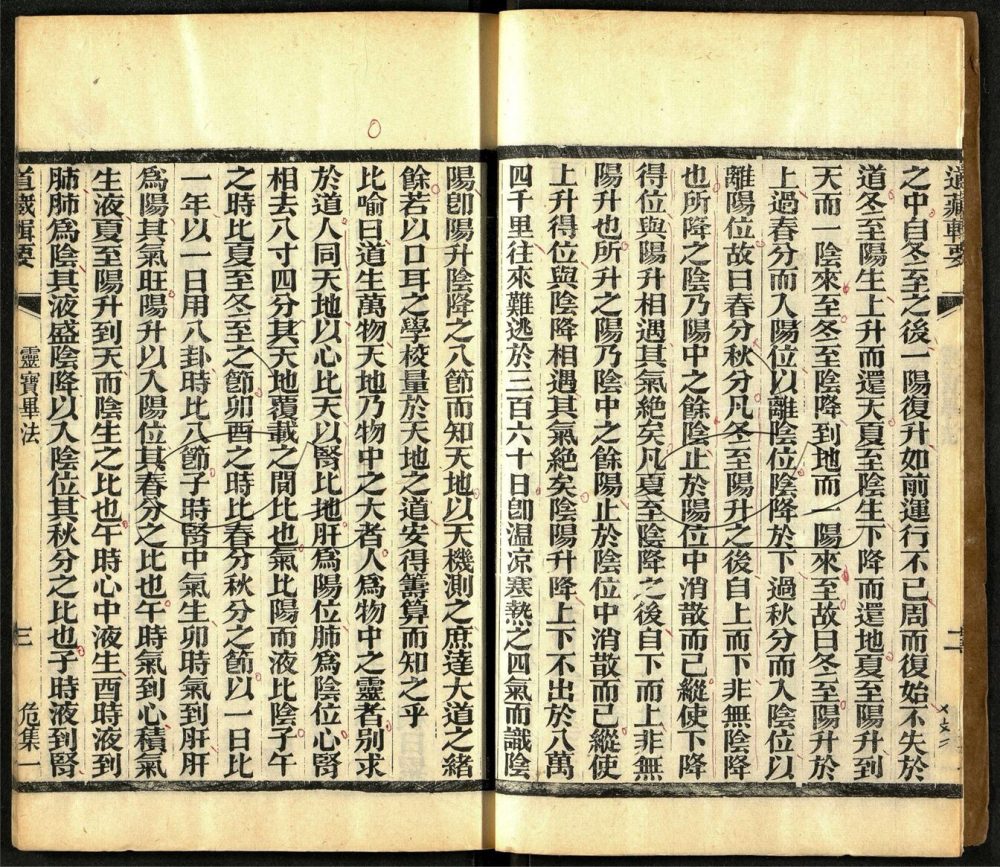 道藏輯要
之中自冬至之後一陽復升如前運行不已周而復始不失於
道冬至陽生上升而還天夏至陰生下降而還地夏至陽升到
天而一陰來至冬至陰降到地而一陽來至故曰冬至陽升於
上過春分而入陽位以離陰位陰降於下過秋分而入陰位以
離陽位故曰春分秋分凡冬至陽升之後自上而下非無陰降
也所降之陰乃陽中之餘陰止於陽位中消散而已縱使下降
得位與陽升相遇其氣絶矣凡夏至陰降之後自下而上非無
陽升也所升之陽乃陰中之餘陽止於陰位中消散而已縱使
上升得位與陰降相遇其氣絶矣陰陽升降上下不出於八萬
四千里往來難逃於三百六十日卽温凉寒熱之四氣而識陰
陽卽陽升陰降之八節而知天地以天機測之庶達大道之緒
餘若以口耳之學校量於天地之道安得籌算而知之乎
比喻曰道生萬物天地乃物中之大者人爲物中之靈者别求
於道人同天地以心比天以腎比地肝爲陽位肺爲陰位心腎
相去八寸四分其天地覆載之間比也氣比陽而液比陰子午
之時比夏至冬至之節卯酉之時比春分秋分之節以一日比
一年以一日用八卦時比八節子時腎中氣生卯時氣到肝肝
爲陽其氣旺陽升以入陽位其春分之比也午時氣到心積氣
生液夏至陽升到天而陰生之比也午時心中液生酉時液到
肺肺爲陰其液盛陰降以入陰位其秋分之比也子時液到腎
道藏輯要
靈寶畢法
三
危集一